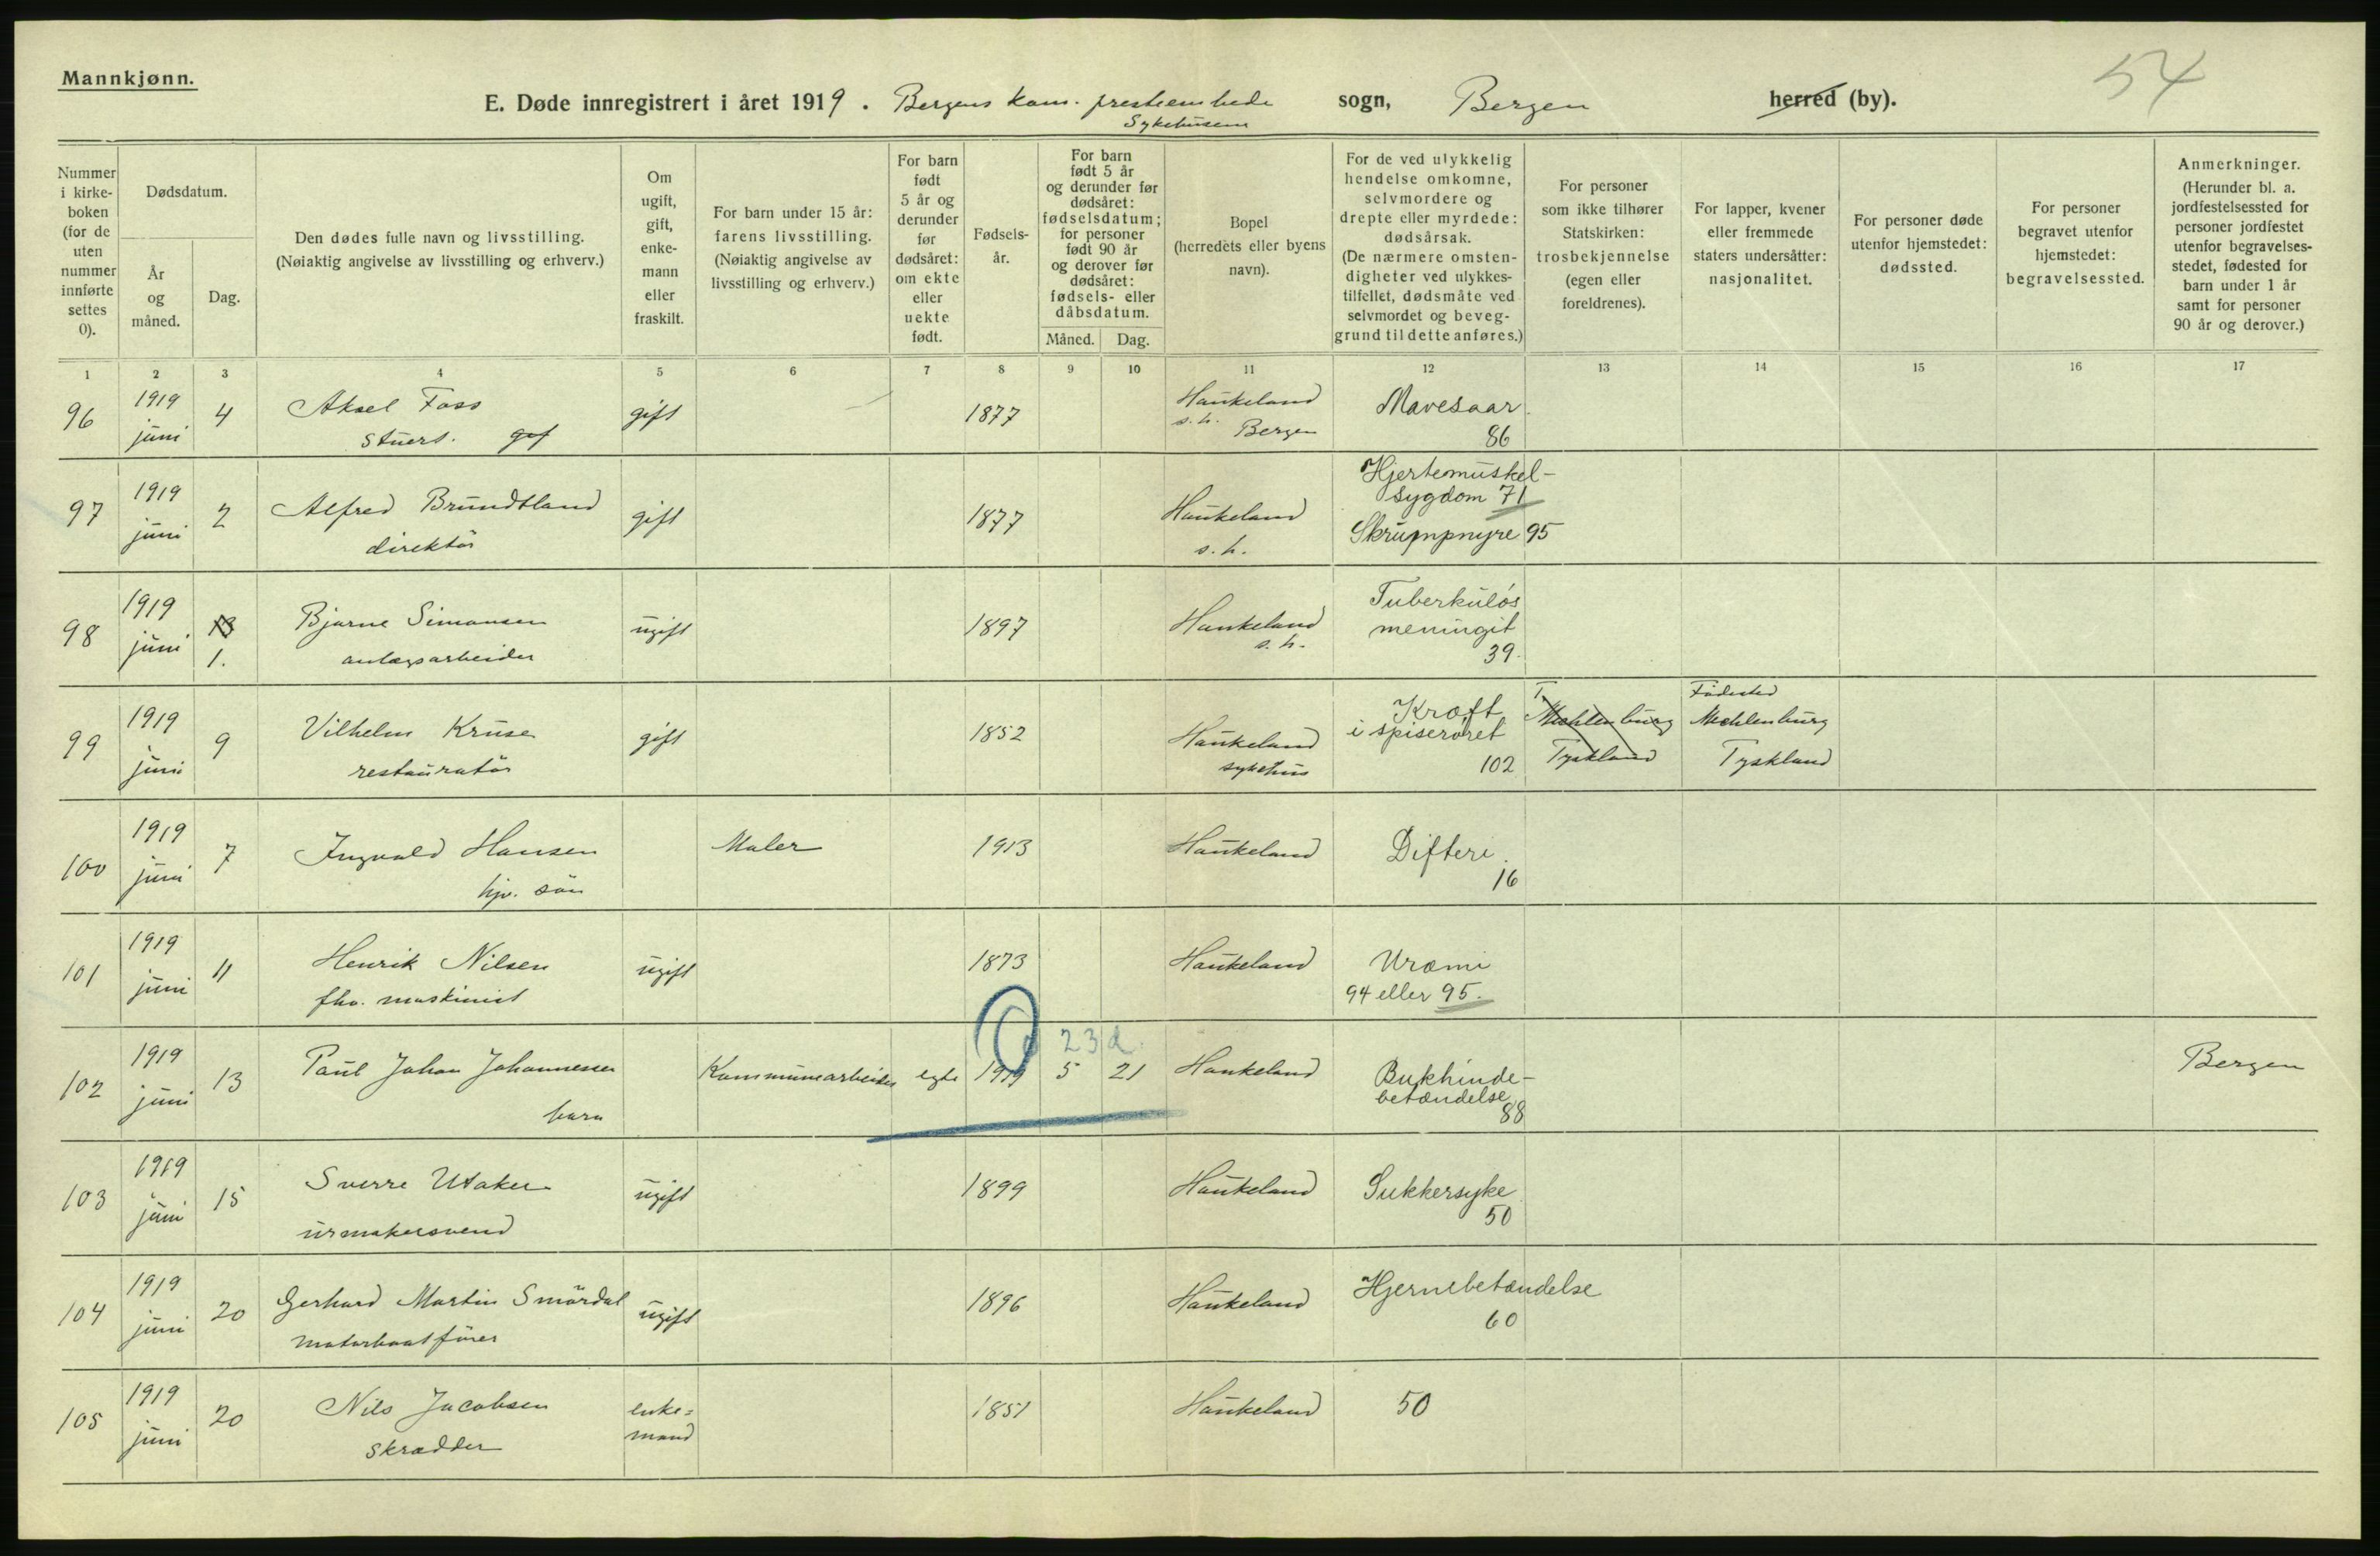 Mannkjønn.
54
E. Døde innregistrert i året 1919. Bergens kom. presteembede sogn, Bergen herred (by).
Sykehusene
Nummer i kirke- boken (for de uten nummer innførte settes 0).
Dødsdatum.
År og måned.
Dag.
Den dødes fulle navn og livsstilling.
(Nøiaktig angivelse av livsstilling og erhverv.)
Om ugift, gift, enke- mann eller fraskilt.
For barn under 15 år: farens livsstilling. (Nøiaktig angivelse av livsstilling og erhverv.)
For barn født 5 år og derunder før dødsåret: om ekte eller uekte født.
Fødsels- år.
For barn født 5 år og derunder før dødsåret: fødselsdatum; for personer født 90 år og derover før dødsåret: fødsels- eller dåbsdatum.
Måned. Dag.
Bopel (herredets eller byens navn).
For de ved ulykkelig hendelse omkomne, selvmordere og drepte eller myrdede: dødsårsak. (De nærmere omsten- digheter ved ulykkes- tilfellet, dødsmåte ved selvmordet og beveg- grund til dette anføres.)
For personer som ikke tilhører Statskirken: trosbekjennelse (egen eller foreldrenes).
For lapper, kvener eller fremmede staters undersåtter: nasjonalitet.
For personer døde utenfor hjemstedet: dødssted.
For personer begravet utenfor hjemstedet: begravelsessted.
Anmerkninger. (Herunder bl. a. jordfestelsessted for personer jordfestet utenfor begravelses- stedet, fødested for barn under 1 år samt for personer 90 år og derover.)
1 2 3 4 5 6 7 8 9 10 11 12 13 14 15 16 17
96 1919 juni 4 Aksel Foss gift 1877 Haukeland s.h. Bergen Mavesaar
stuert. 86
97 1919 juni 2 Alfred Brundtland gift 1877 Haukeland s.h. Hjertemuskel-
sygdom 71
direktör Skrumpnyre 95
98 1919 juni 13 1. Bjarne Simonsen ugift 1897 Haukeland s.h. Tuberkuløs
anlægsarbeider meningit
39.
99 1919 juni 9 Vilhelm Kruse gift 1852 Haukeland sykehus Kræft
i spiserøret
restauratör 102
T Mechlenburg Tyskland
Födested Mechlenburg Tyskland
100 1919 juni 7 Ingvald Hansen Maler 1913 Haukeland Difteri.
hjv. sön 16
101 1919 juni 11 Henrik Nilsen ugift 1873 Haukeland Uræmi
fhv. maskinist 94 eller 95.
23 d.
102 1919 juni 13 Paul Johan Johannessen Kommunearbeider egte 1919 5 21 Haukeland Bukhinde- Bergen
barn betændelse
88
103 1919 juni 15 Sverre Utaker ugift 1899 Haukeland Sukkersyke
urmakersvend 50
104 1919 juni 20 Gerhard Martin Smördal ugift 1896 Haukeland Hjernebetændelse
motorbaatförer 60
105 1919 juni 20 Nils Jacobsen enke= mand 1851 Haukeland 50
skrædder